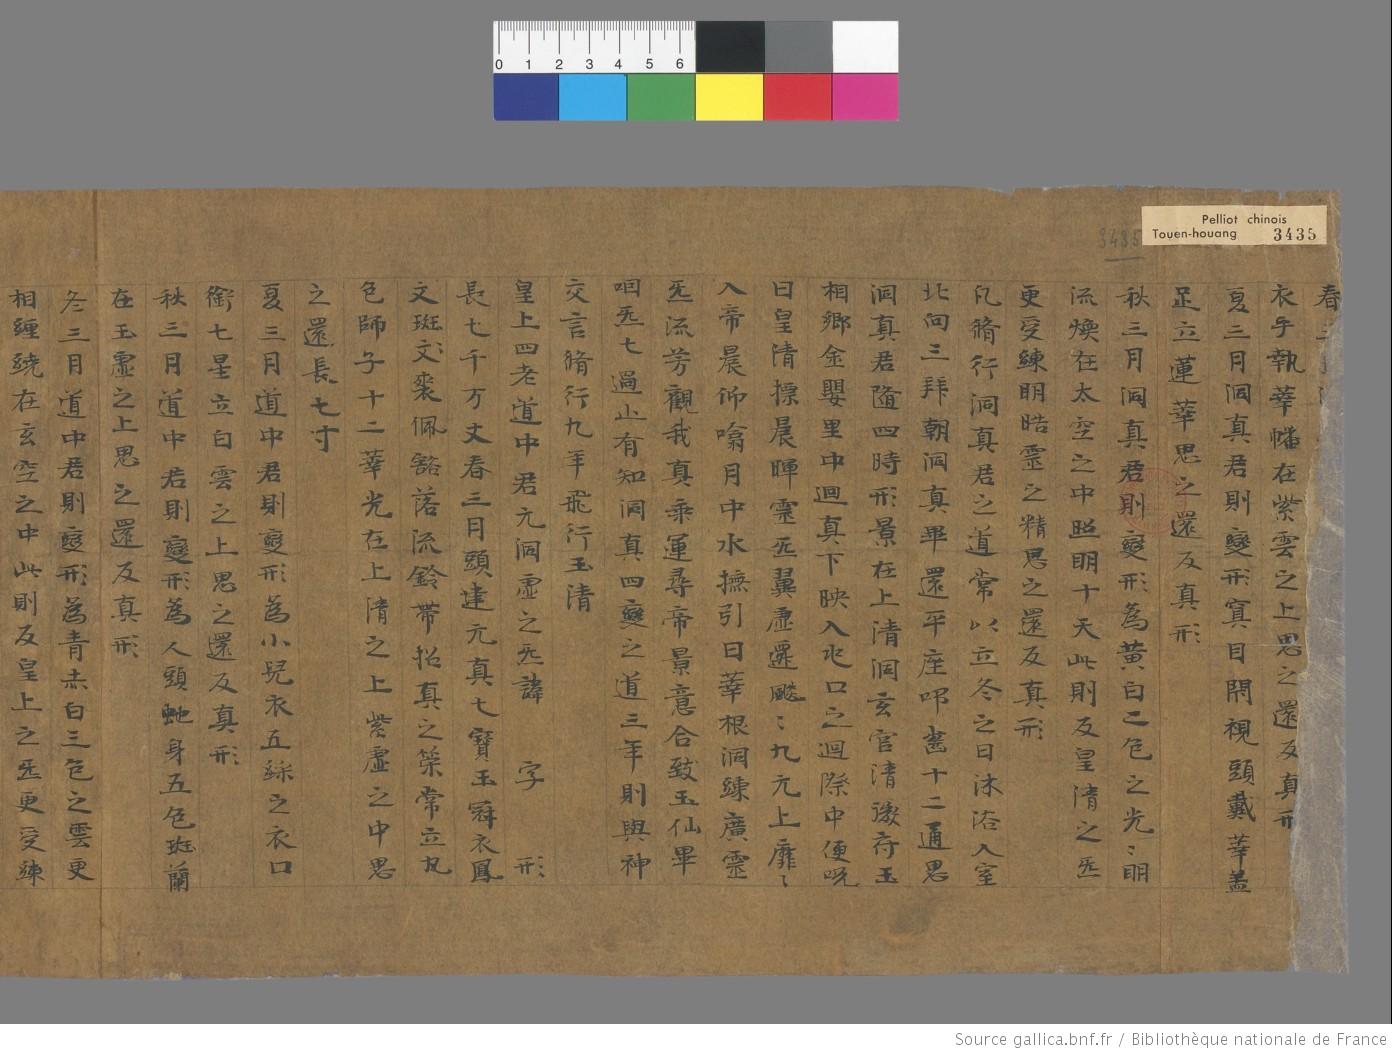 0 1 2 3 4 5 6
Pelliot chinois
Touen-houang 3435
3435
春三
衣手執華幡在紫雲之上思之還反真形
夏三月洞真君則變形寘目閇視頭戴華蓋
足立蓮華思之還反真形
秋三月洞真君則變形為黄白二色之光〻明
流煥在太空之中照明十天此則反皇清之炁
更受練明晧靈之精思之還反真形
凡脩行洞真君之道常以立冬之日沐浴入室
北向三拜朝洞真畢還平座叩齒十二通思
洞真君隨四時形景在上清洞玄宫清
符玉
相鄉金嬰里中迴真下映入
口之迴際中便呪
曰皇清摽晨暉靈炁翼虚遷飈〻九元上靡〻
入帝晨仰噏月中水撫引日華根洞練廣靈
炁流芳觀我真乘運尋帝景意合致玉仙畢
咽炁七過止有知洞真四變之道三年則與神
交言脩行九年飛行玉清
皇上四老道中君元洞虚之炁諱 字 形
長七千万丈春三月頭建元真七寳玉冠衣鳳
文斑文裘佩豁落流鈴帶招真之策常立九
色師子十二華光在上清之上紫虚之中思
之還長七寸
夏三月道中君則變形為小兒衣五綵之衣口
銜七星立白雲之上思之還反真形
秋三月道中君則變形為人頭虵身五色斑蘭
在玉虚之上思之還反真形
冬三月道中君則變形為青赤白三色之雲更
相纏繞在玄空之中此則反皇上之炁更受練
Source gallica.bnf.fr / Bibliothèque nationale de France